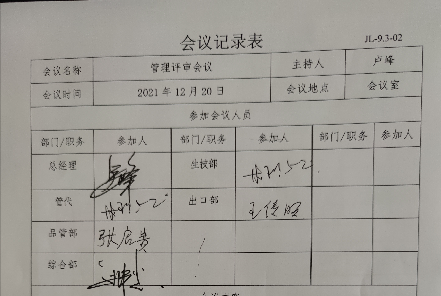 会议记录表
JL-9.3-02
会议名称 管理评审会议 主持人 卢峰
会议时间 2021年12月20日 会议地点 会议室
参加会议人员
部门/职务 参加人 部门/职务 参加人 部门/职务 参加人
总经理 生技部
管代 出口部
品管部 张启贵
综合部